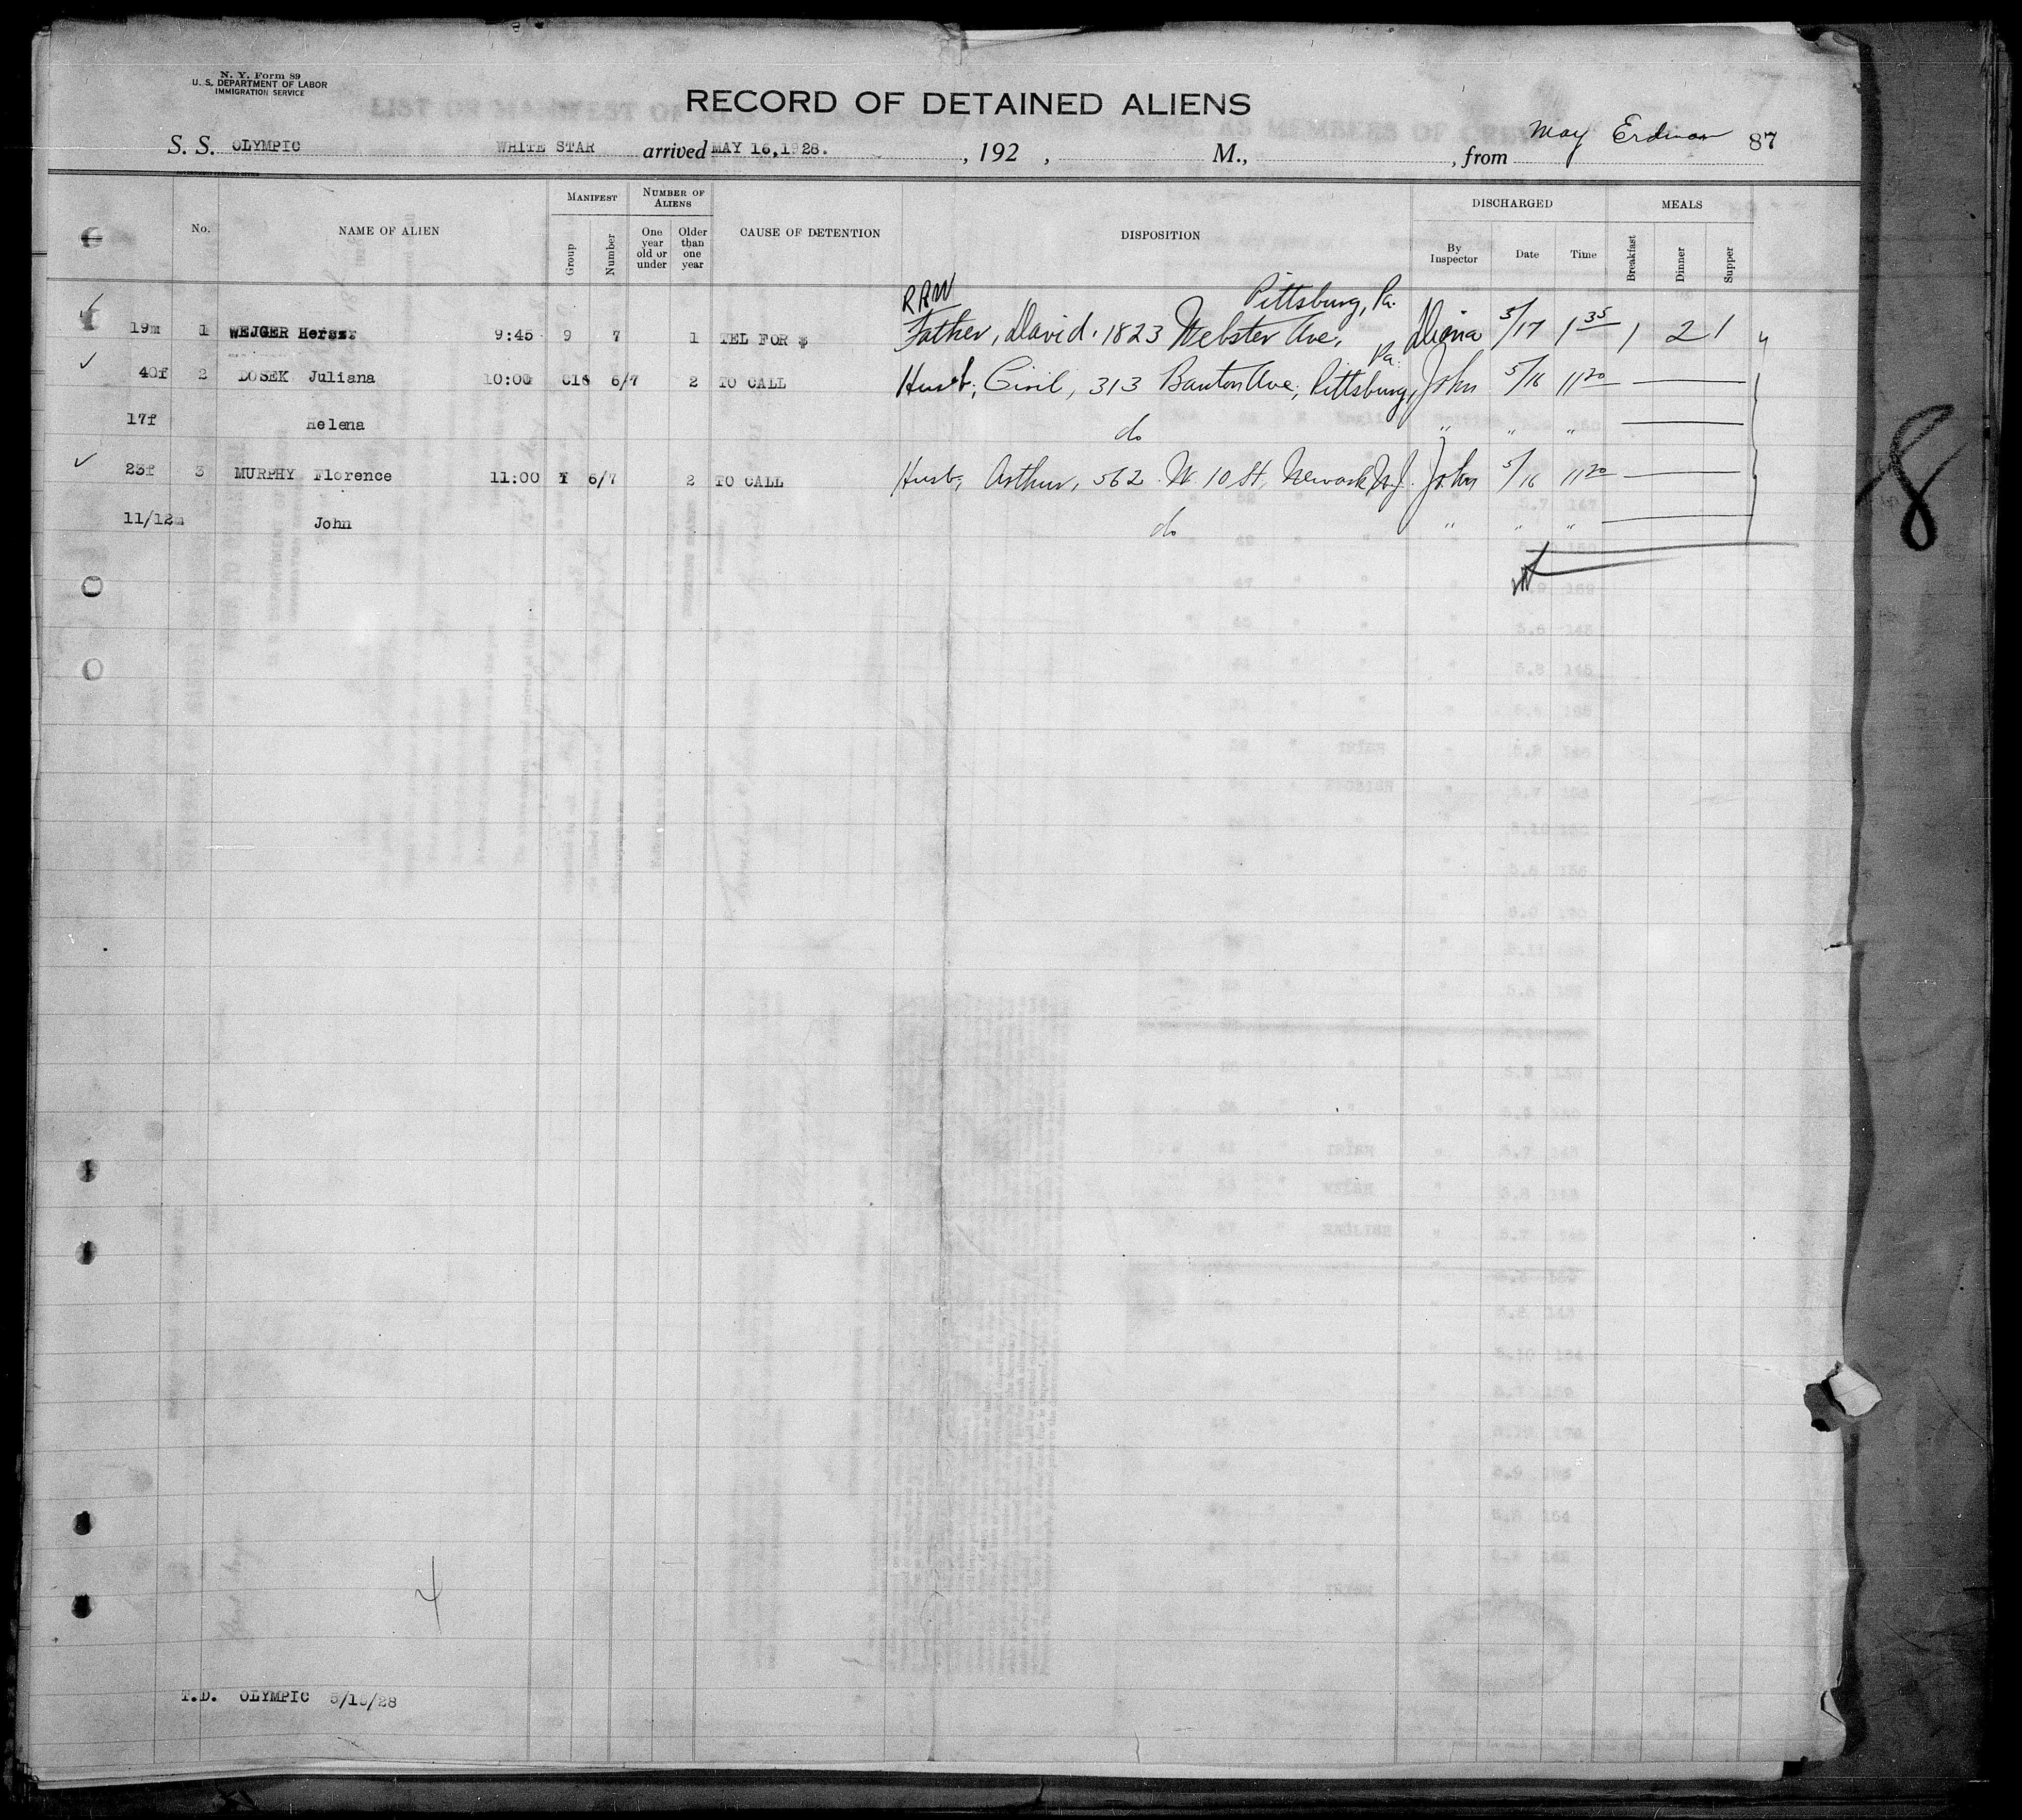 N. Y. Form 89
U. S. DEPARTMENT OF LABOR
IMMIGRATION SERVICE
RECORD OF DETAINED ALIENS
S. S. OLYMPIC WHITE STAR arrived MAY 16,1928. , 192 , M., , from May Erdman 87
No. NAME OF ALIEN MANIFEST Group Number NUMBER OF ALIENS One year old or under Older than one year CAUSE OF DETENTION DISPOSITION DISCHARGED By Inspector Date Time MEALS Breakfast Dinner Supper
RRW Pittsburg, Pa.
19m 1 WEJGER Hersz 9:45 9 7 1 TEL FOR $ Father, David. 1823 Webster Ave, 5/17 1 35 1 2 1
Pa.
40f 2 DOSEK Juliana 10:00 C16 6/7 2 TO CALL Husb, Ciril, 313 Banton Ave, Pittsburg, John 5/16 11 20
17f Helena do " " "
23f 3 MURPHY Florence 11:00 6/7 2 TO CALL Husb, Arthur, 562 N. 10 St, Newark N.J. John 5/16 11 20
11/12m John do " " "
8
4
T.D. OLYMPIC 5/16/28